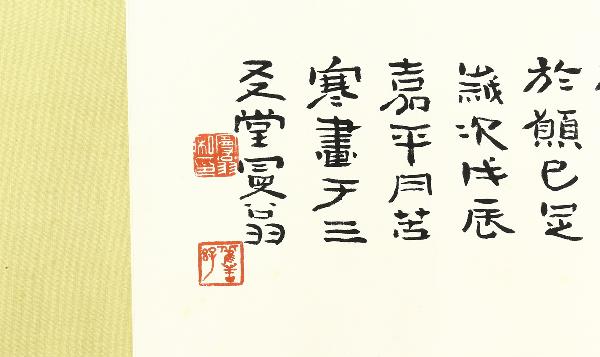 於願已足
歲次戊辰
嘉平月苦
寒畫于三
友堂曼翁